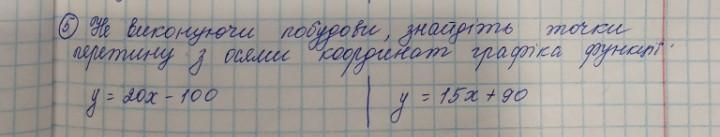 ⑤ Не виконуючи побудови, знайдіть точки
перетину з осями координат графіка функції:
y = 20x - 100
y = 15x + 90